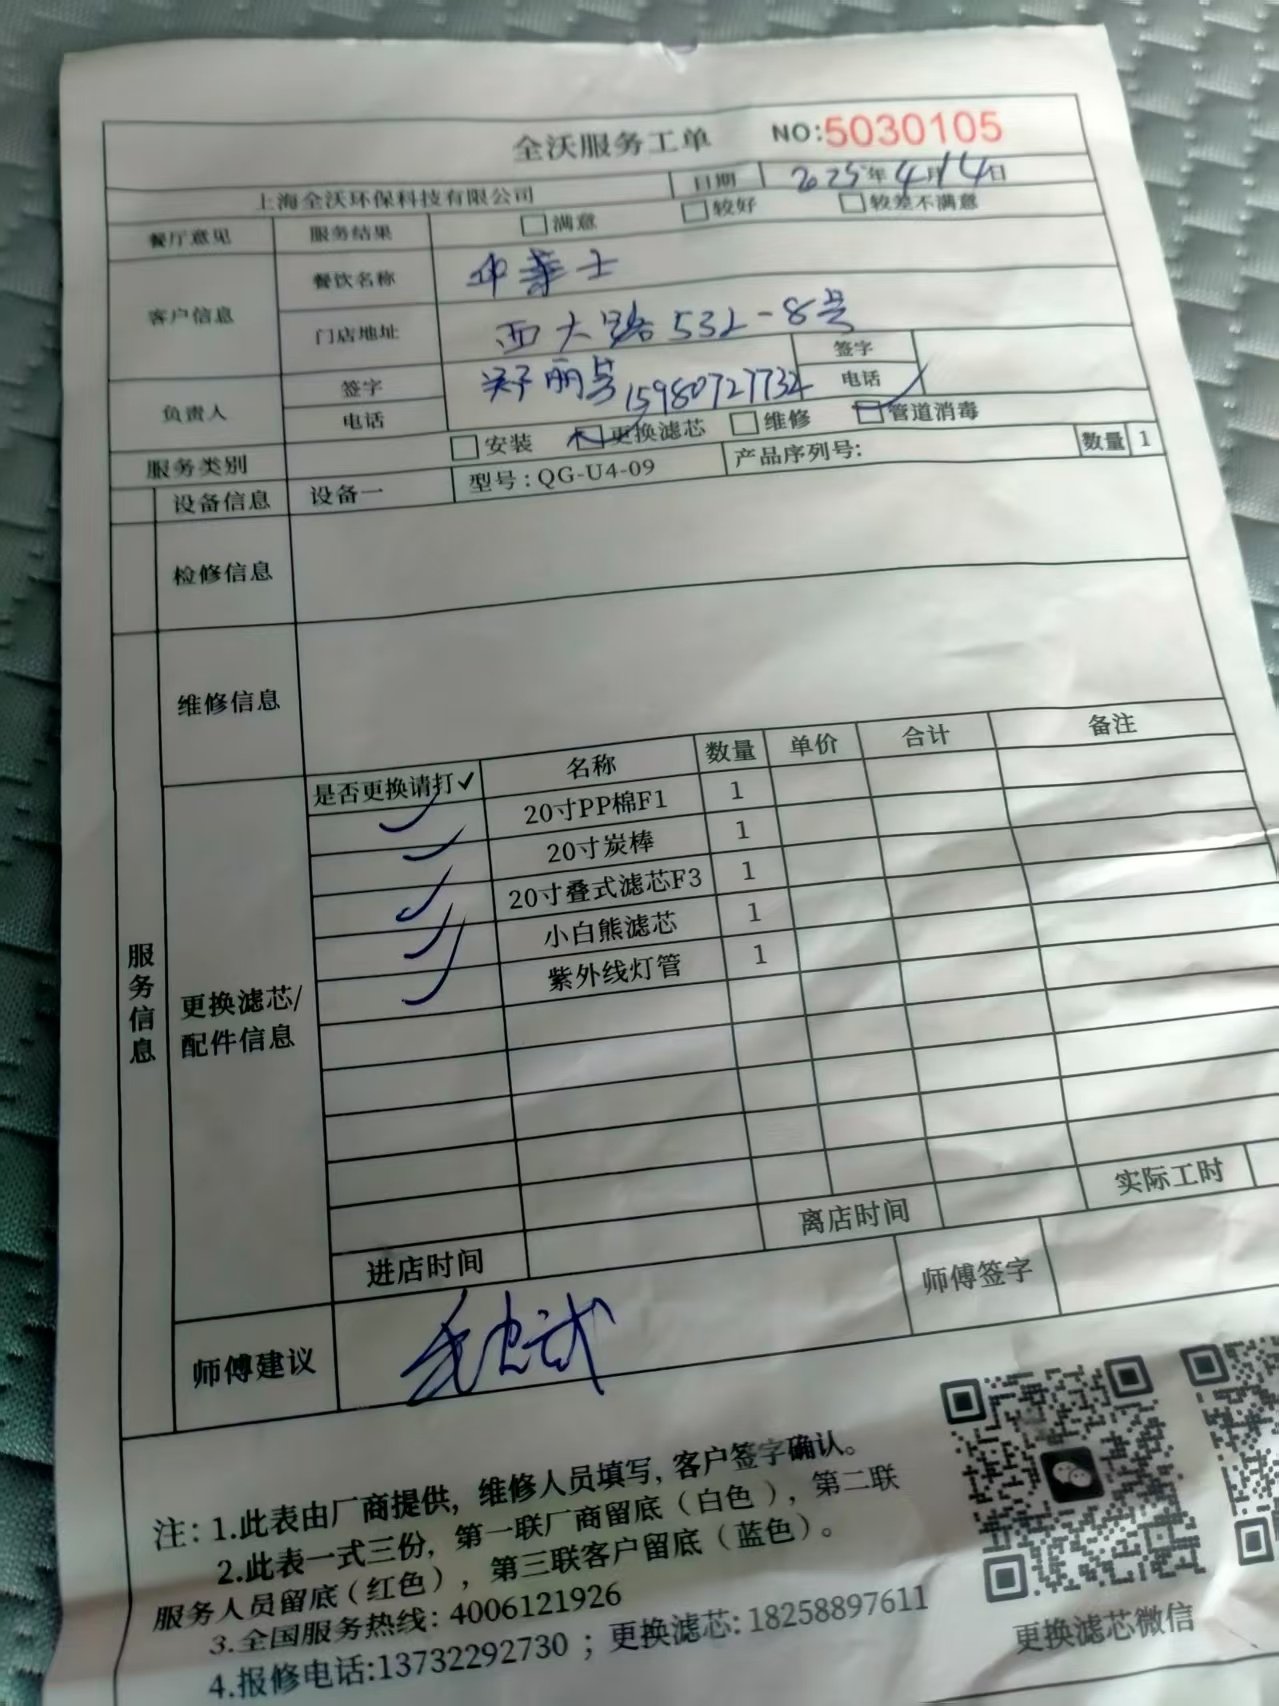 全沃服务工单 NO:5030105
上海全沃环保科技有限公司 日期 2025年4月14日
餐厅意见 服务结果 满意 较好 较差不满意
客户信息 餐饮名称 华莱士
门店地址 西大路532-8号
负责人 签字 郑丽 签字
电话 15980727732 电话
服务类别 安装 更换滤芯 维修 管道消毒
设备信息 设备一 型号:QG-U4-09 产品序列号: 数量 1
检修信息
维修信息
服务信息
更换滤芯/
配件信息
是否更换请打✓ 名称 数量 单价 合计 备注
✓ 20寸PP棉F1 1
✓ 20寸炭棒 1
✓ 20寸叠式滤芯F3 1
✓ 小白熊滤芯 1
✓ 紫外线灯管 1
进店时间 离店时间 实际工时
师傅建议 师傅签字
注: 1.此表由厂商提供，维修人员填写，客户签字确认。
2.此表一式三份，第一联厂商留底（白色），第二联
服务人员留底（红色），第三联客户留底（蓝色）。
3.全国服务热线: 4006121926
4.报修电话:13732292730 ；更换滤芯: 18258897611
更换滤芯微信